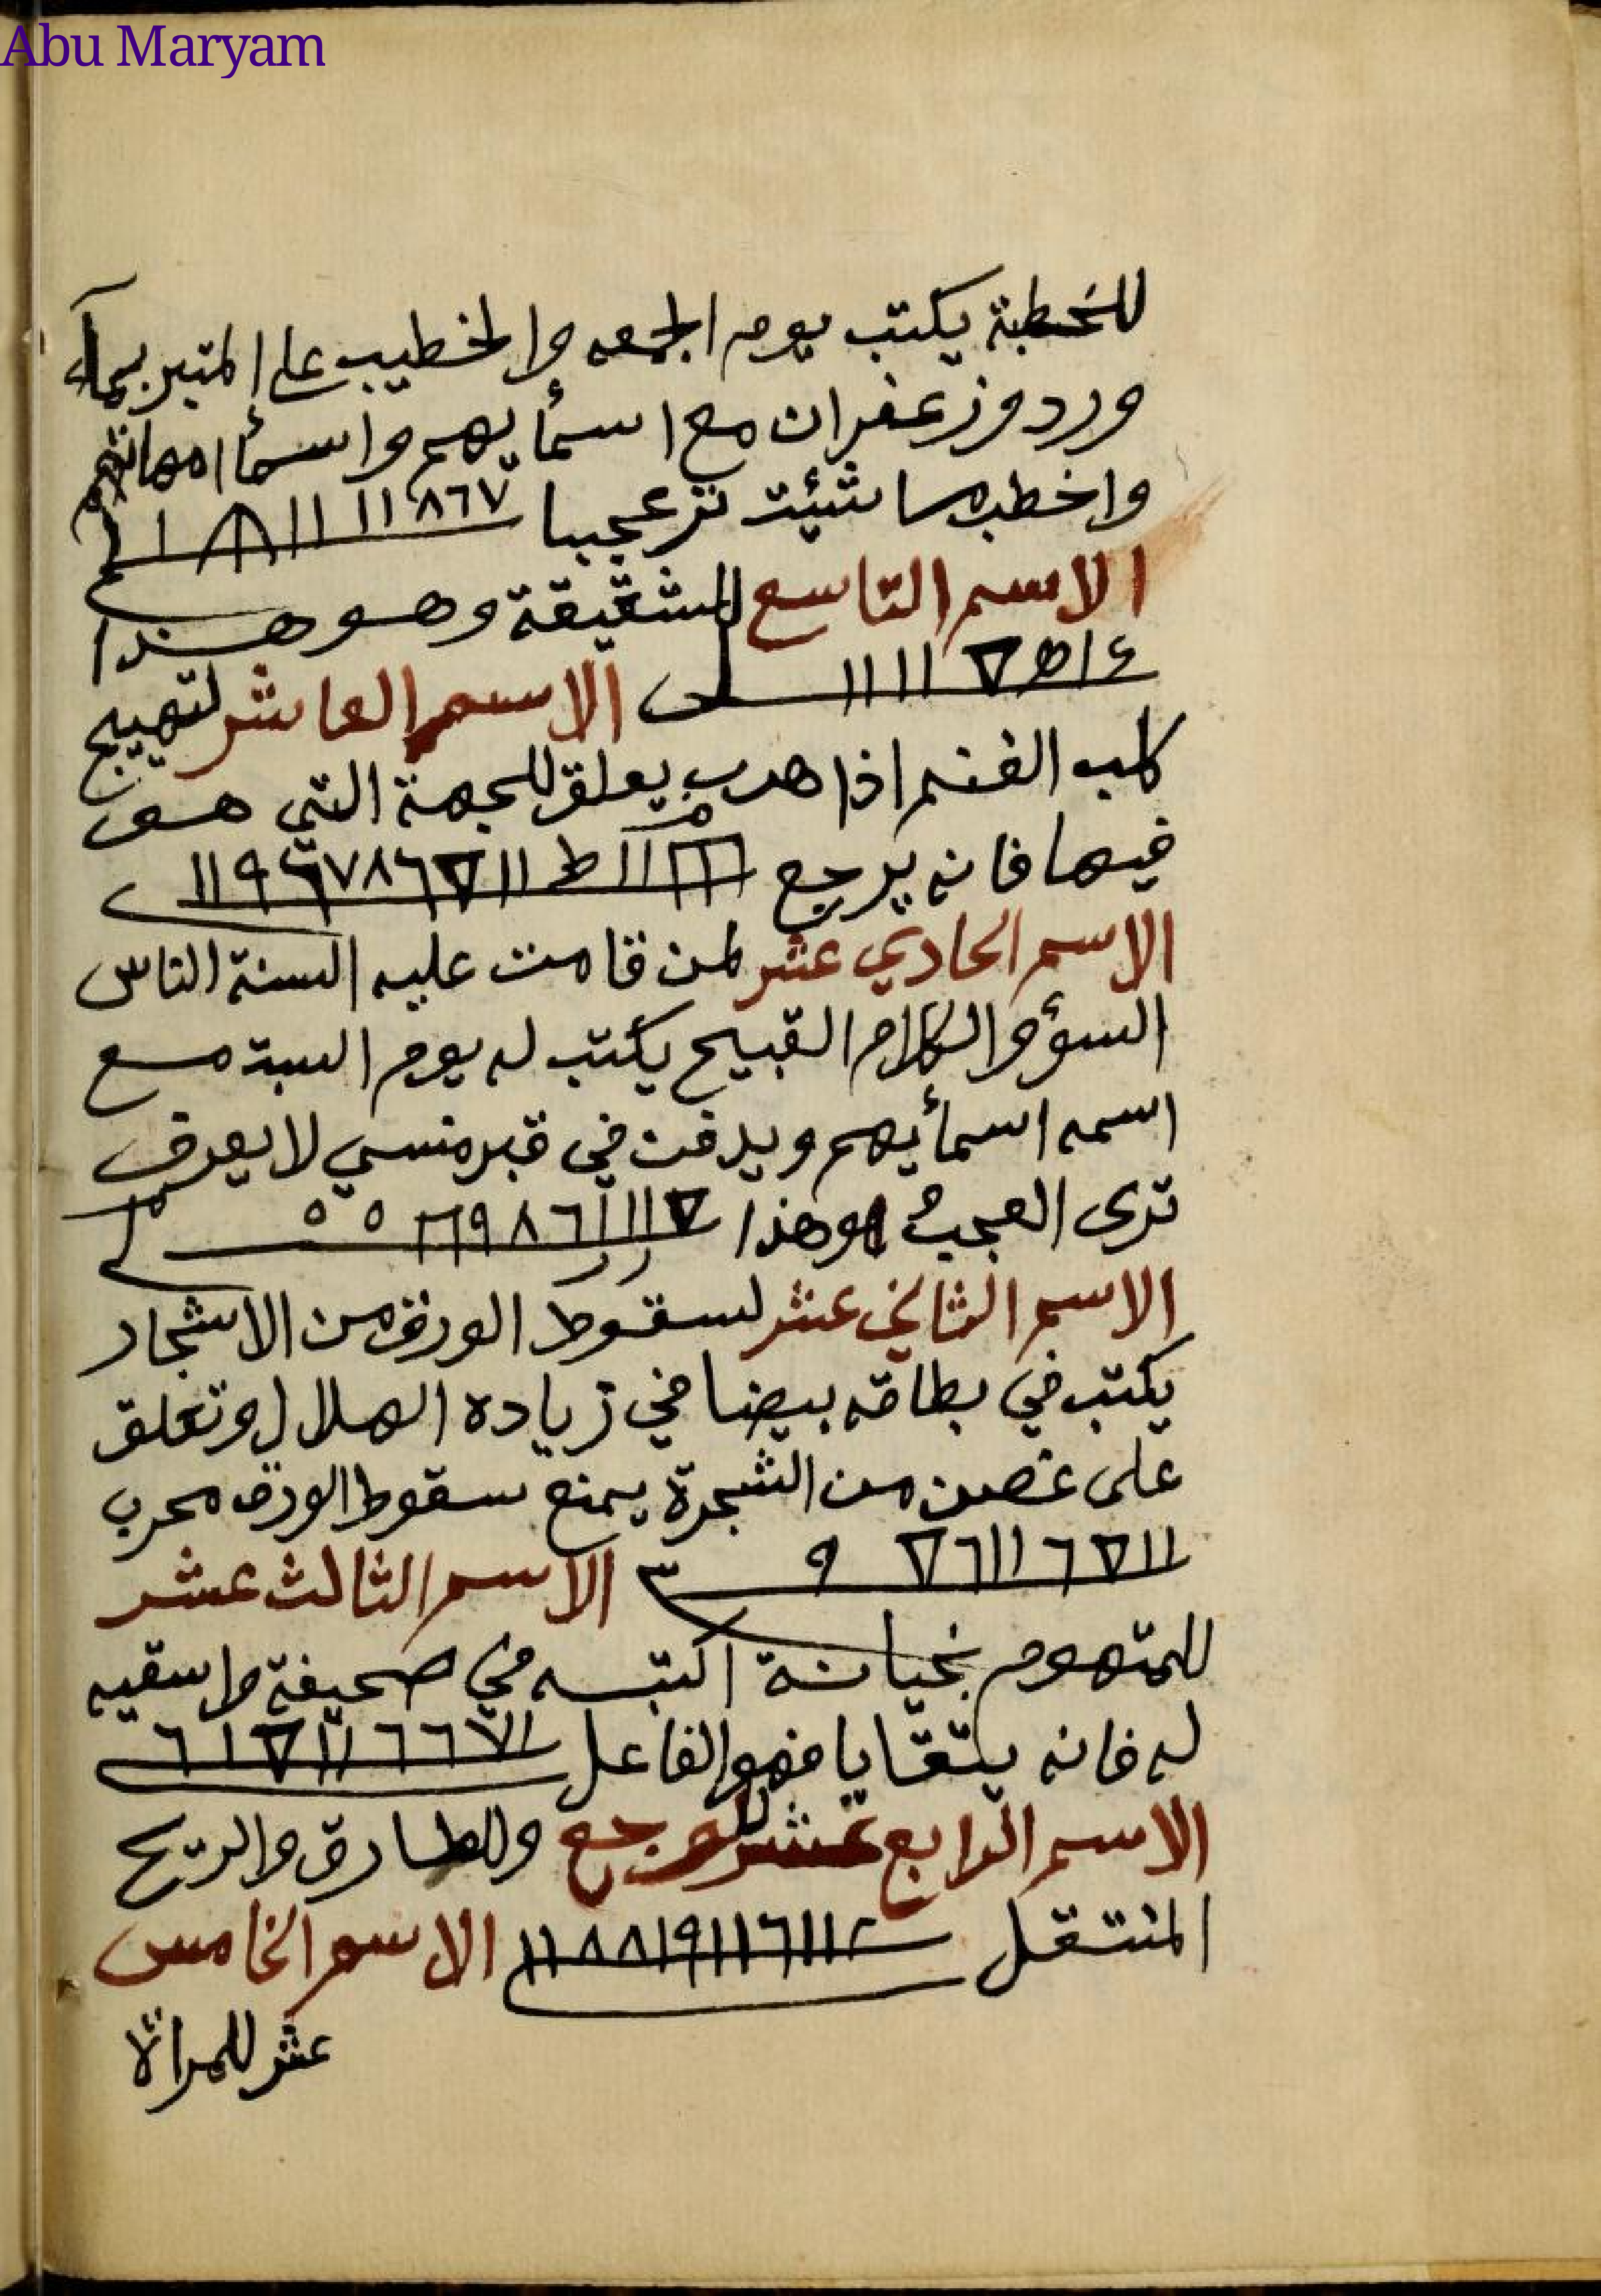 Abu Maryam
للخطبة يكتب يوم الجمعه والخطيب على المنبر بمآء
ورد وزعفران مع اسمأيهم واسمأ امهاتهم
واخطب ما شئيت تر عجبا ٨٦٧ ١١ ١١ ١
الاسم التاسع للشقيقة وهو هذا
الاسم العاشر لتهييج
كلب الغنم اذا هرب يعلق للجهة التي هو
فيها فانه يرجع
الاسم الحادي عشر لمن قامت عليه السنة الناس
السؤ والكلام القبيح يكتب له يوم السبت مع
اسمه اسمأيهم ويدفن في قبر منسي لا يعرف
ترى العجب وهذا
الاسم الثاني عشر لسقوط الورق من الاشجار
يكتب في بطاقه بيضا في زيادة الهلال وتعلق
على غصن من الشجرة يمنع سقوط الورق مجرب
الاسم الثالث عشر
للمتهوم بخيانة اكتبه في صحيفة واسقيه
له فانه يتقايا فهو الفاعل
الاسم الرابع عشر للوجع وللطارق والريح
المنتقل الاسم الخامس
عشر للمراة